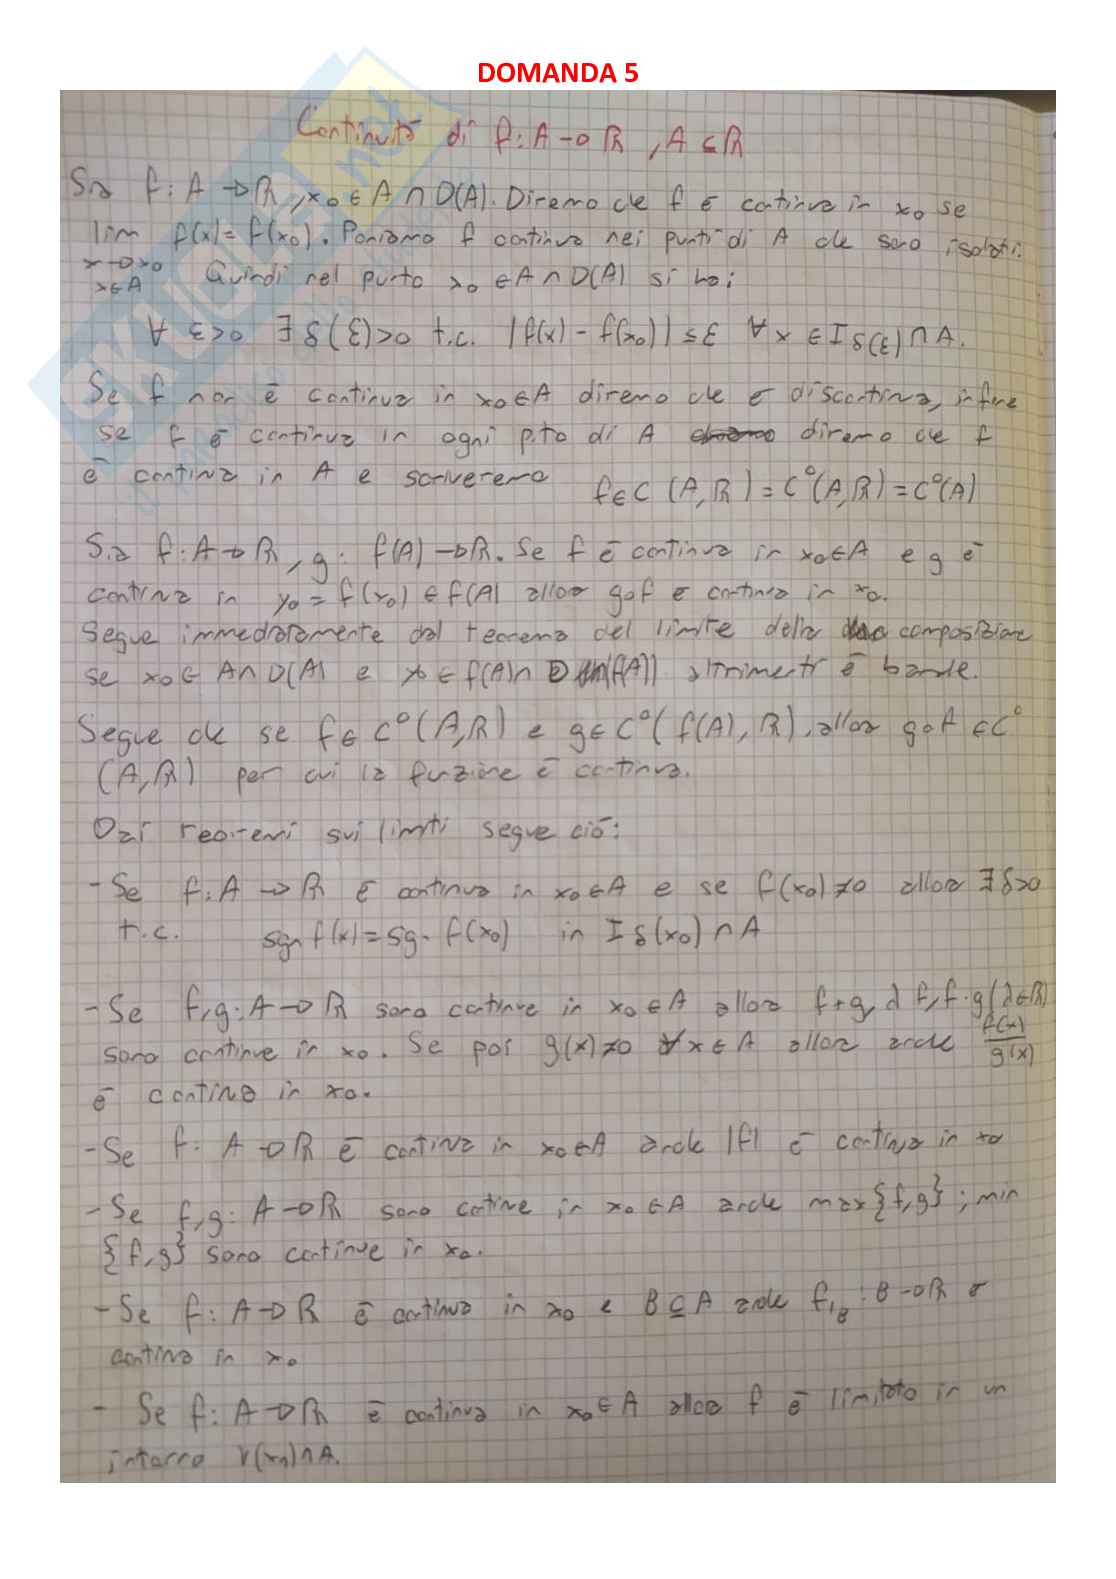 DOMANDA 5
Continuità di f: A → ℝ , A ⊆ ℝ
Sia f: A → ℝ, x₀ ∈ A ∩ D(A). Diremo che f è continua in x₀ se
lim f(x) = f(x₀). Poniamo f continua nei punti di A che sono isolati.
x→x₀
x∈A Quindi nel punto x₀ ∈ A ∩ D(A) si ha:
∀ ε>0 ∃ δ(ε)>0 t.c. |f(x) - f(x₀)| ≤ ε ∀ x ∈ I δ(ε) ∩ A.
Se f non è continua in x₀∈A diremo che è discontinua, infine
se f è continua in ogni p.to di A diremo che f
è continua in A e scriveremo f ∈ C (A,ℝ) = C⁰(A,ℝ) = C⁰(A)
Sia f: A → ℝ, g: f(A) → ℝ. Se f è continua in x₀∈A e g è
continua in y₀ = f(x₀) ∈ f(A) allora gof è continua in x₀.
Segue immediatamente dal teorema del limite della composizione
se x₀ ∈ A∩D(A) e y₀ ∈ f(A)∩ D (f(A)) altrimenti è banale.
Segue che se f∈ C⁰(A,ℝ) e g∈C⁰(f(A),ℝ), allora gof ∈C⁰
(A,ℝ) per cui la funzione è continua.
Dai teoremi sui limiti segue ciò:
- Se f: A → ℝ è continua in x₀∈A e se f(x₀)≠0 allora ∃ δ>0
t.c. sgn f(x) = sg. f(x₀) in I δ(x₀) ∩ A
- Se f,g: A → ℝ sono continue in x₀∈A allora f+g, λf, f·g (λ∈ℝ)
sono continue in x₀. Se poi g(x)≠0 ∀x∈A allora anche f(x)/g(x)
è continua in x₀.
- Se f: A → ℝ è continua in x₀∈A anche |f| è continua in x₀
- Se f,g: A → ℝ sono cotine in x₀∈A anche max{f,g} ; min
{f,g} sono continue in x₀.
- Se f: A → ℝ è continua in x₀ e B ⊆ A anche f|B : B → ℝ è
continua in x₀
- Se f: A → ℝ è continua in x₀∈A allora f è limitato in un
intorno V(x₀)∩A.